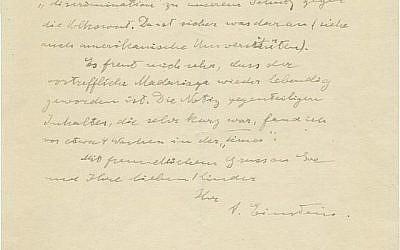 "discrimination zu unserem Schutz gegen
die Ostwont. Da ist sicher was daran (siehe
auch amerikanische Universitäten).
Es freut mich sehr, dass der
vortreffliche Madariaga wieder lebendig
geworden ist. Die Notiz gegenteiligen
Inhaltes, die sehr kurz war, fand ich
vor etwa Wochen in der „Times".
Mit freundlichem Gruss an Sie
und Ihre lieben Kinder
Ihr
A. Einstein.